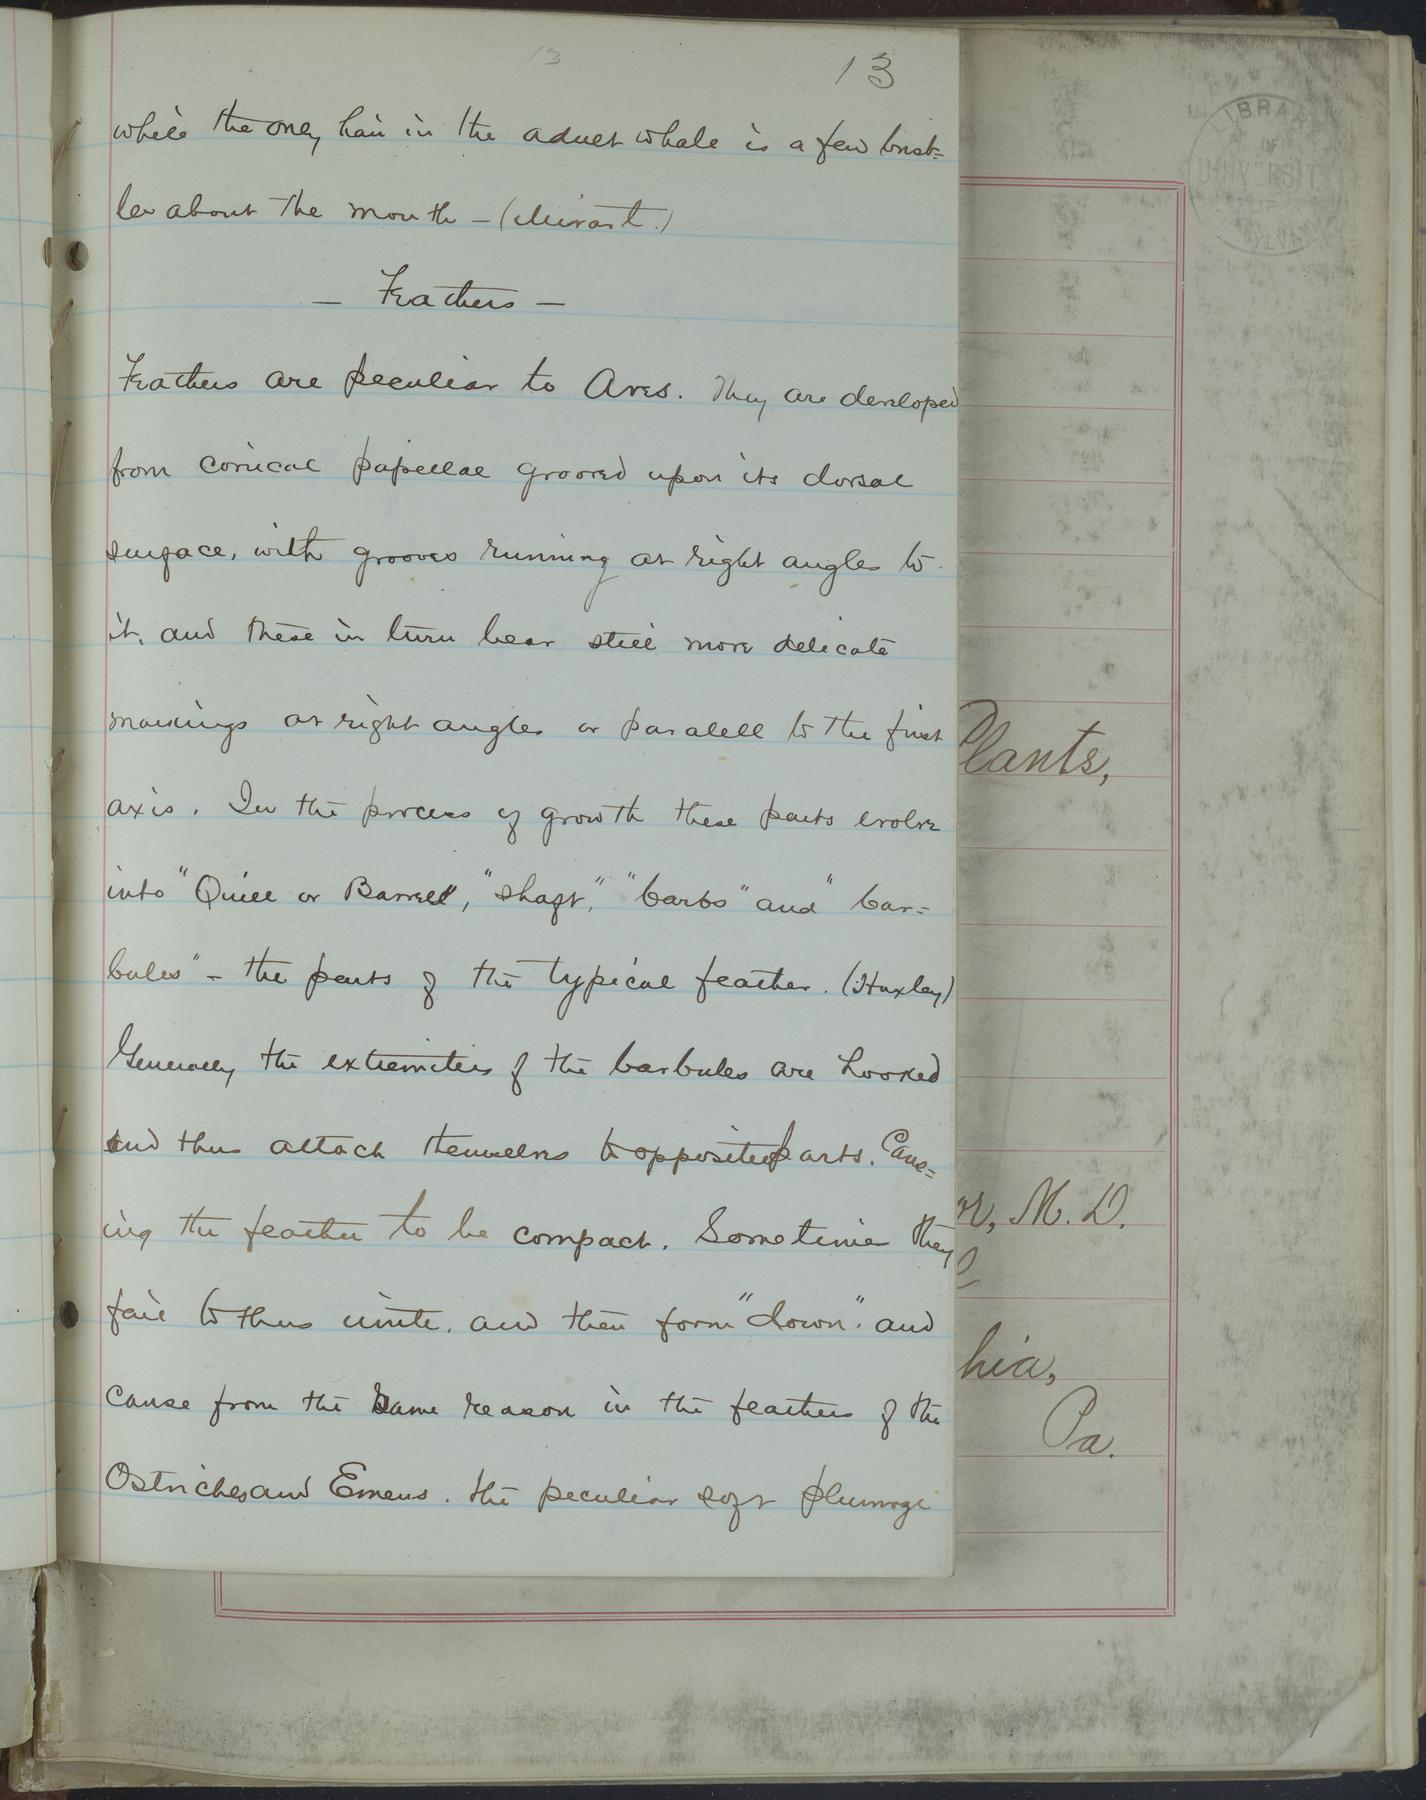 13
13
while the only hair in the adult whale is a few brist=
les about the mouth – (Mivart.)
– Feathers –
Feathers are peculiar to Aves. They are developed
from conical papillae grooved upon its dorsal
surface, with grooves running at right angles to
it, and these in turn bear still more delicate
markings at right angles or paralell to the first
axis. In the process of growth these parts evolve
into "Quill or Barrell", "shaft," "barbs" and "bar=
bules" – the parts of the typical feather. (Huxley)
Generally the extremities of the barbules are hooked
and thus attach themselves to opposite parts. Caus=
ing the feather to be compact. Sometimes they
fail to thus unite, and then form "down". and
cause from the same reason in the feathers of the
Ostriches and Emeus. the peculiar soft plumage
Plants,
M. D.
hia,
Pa.
LIBRARY
OF
UNIVERSIT